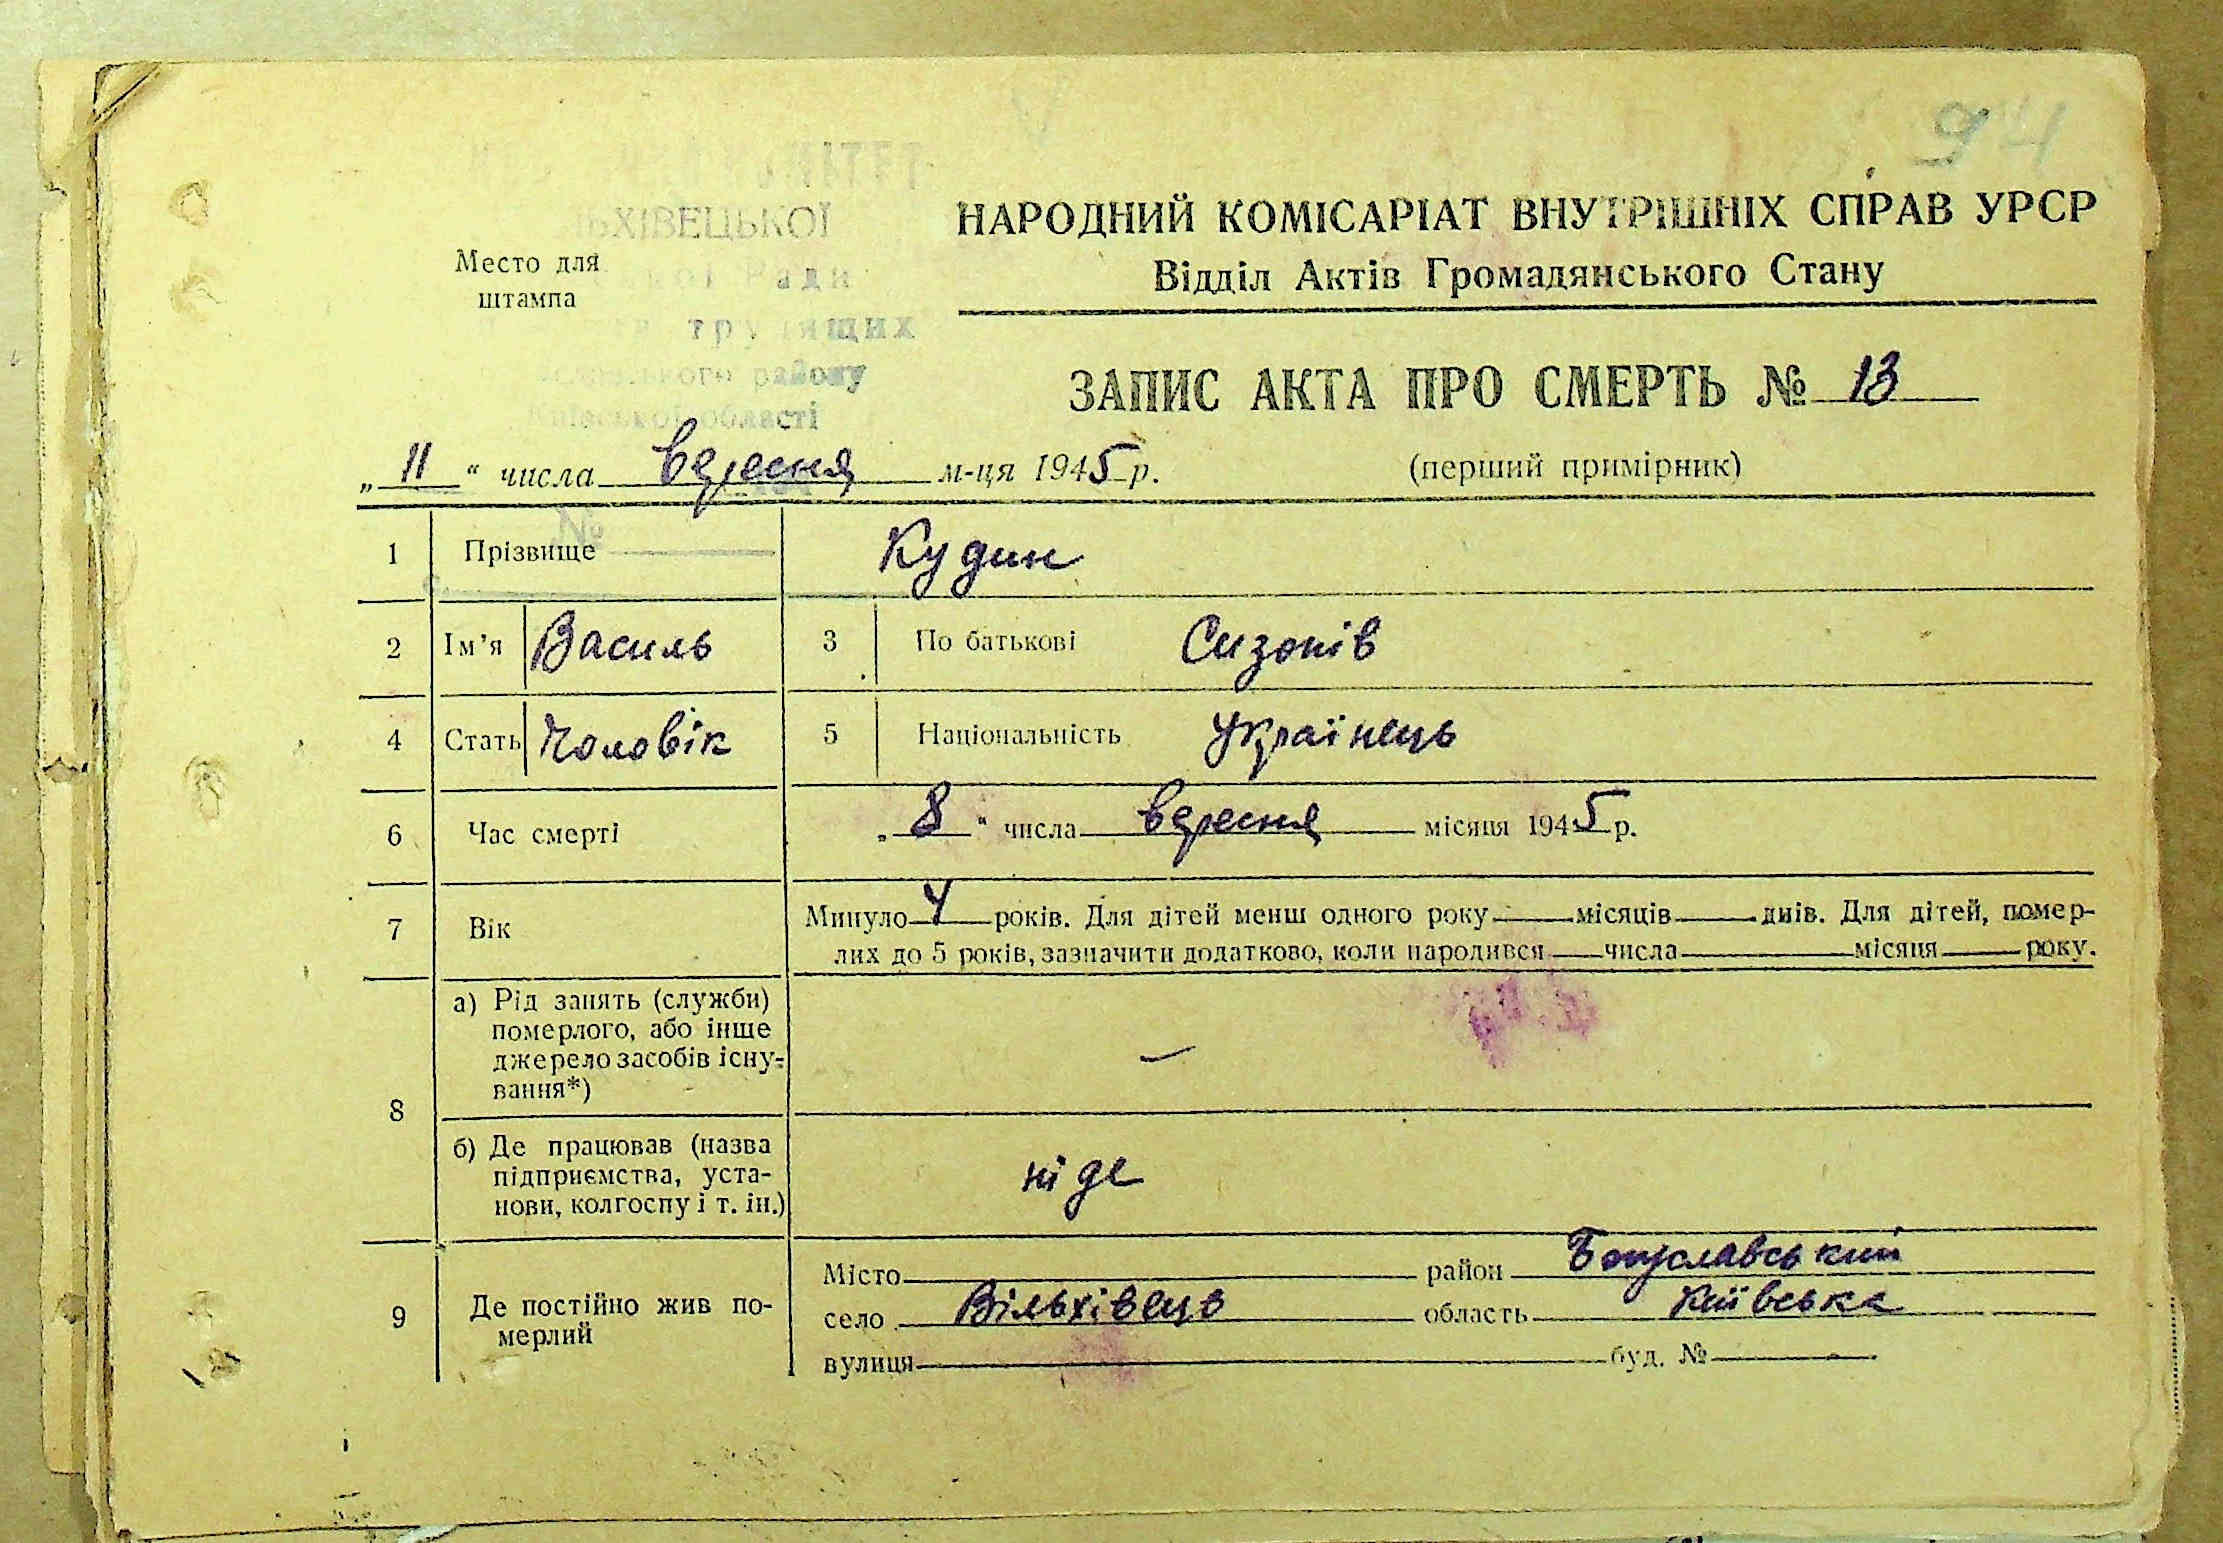 94
ЛЬХІВЕЦЬКОЇ
Ради
трудящих
району
Київської області
№
Место для
штампа
НАРОДНИЙ КОМІСАРІАТ ВНУТРІШНІХ СПРАВ УРСР
Відділ Актів Громадянського Стану
ЗАПИС АКТА ПРО СМЕРТЬ № 13
„ 11 “ числа вересня м-ця 1945 р.
(перший примірник)
1 Прізвище Кудин
2 Ім’я Василь 3 По батькові Сизонів
4 Стать Чоловік 5 Національність Українець
6 Час смерті „ 8 “ числа вересня місяця 1945 р.
7 Вік Минуло 4 років. Для дітей менш одного року місяців днів. Для дітей, помер-
лих до 5 років, зазначити додатково, коли народився числа місяця року.
8 а) Рід занять (служби)
померлого, або інше
джерело засобів існу-
вання*) —
б) Де працював (назва
підприємства, уста-
нови, колгоспу і т. ін.) ні де
9 Де постійно жив по-
мерлий
Місто район Богуславський
село Вільхівець область Київська
вулиця буд. №